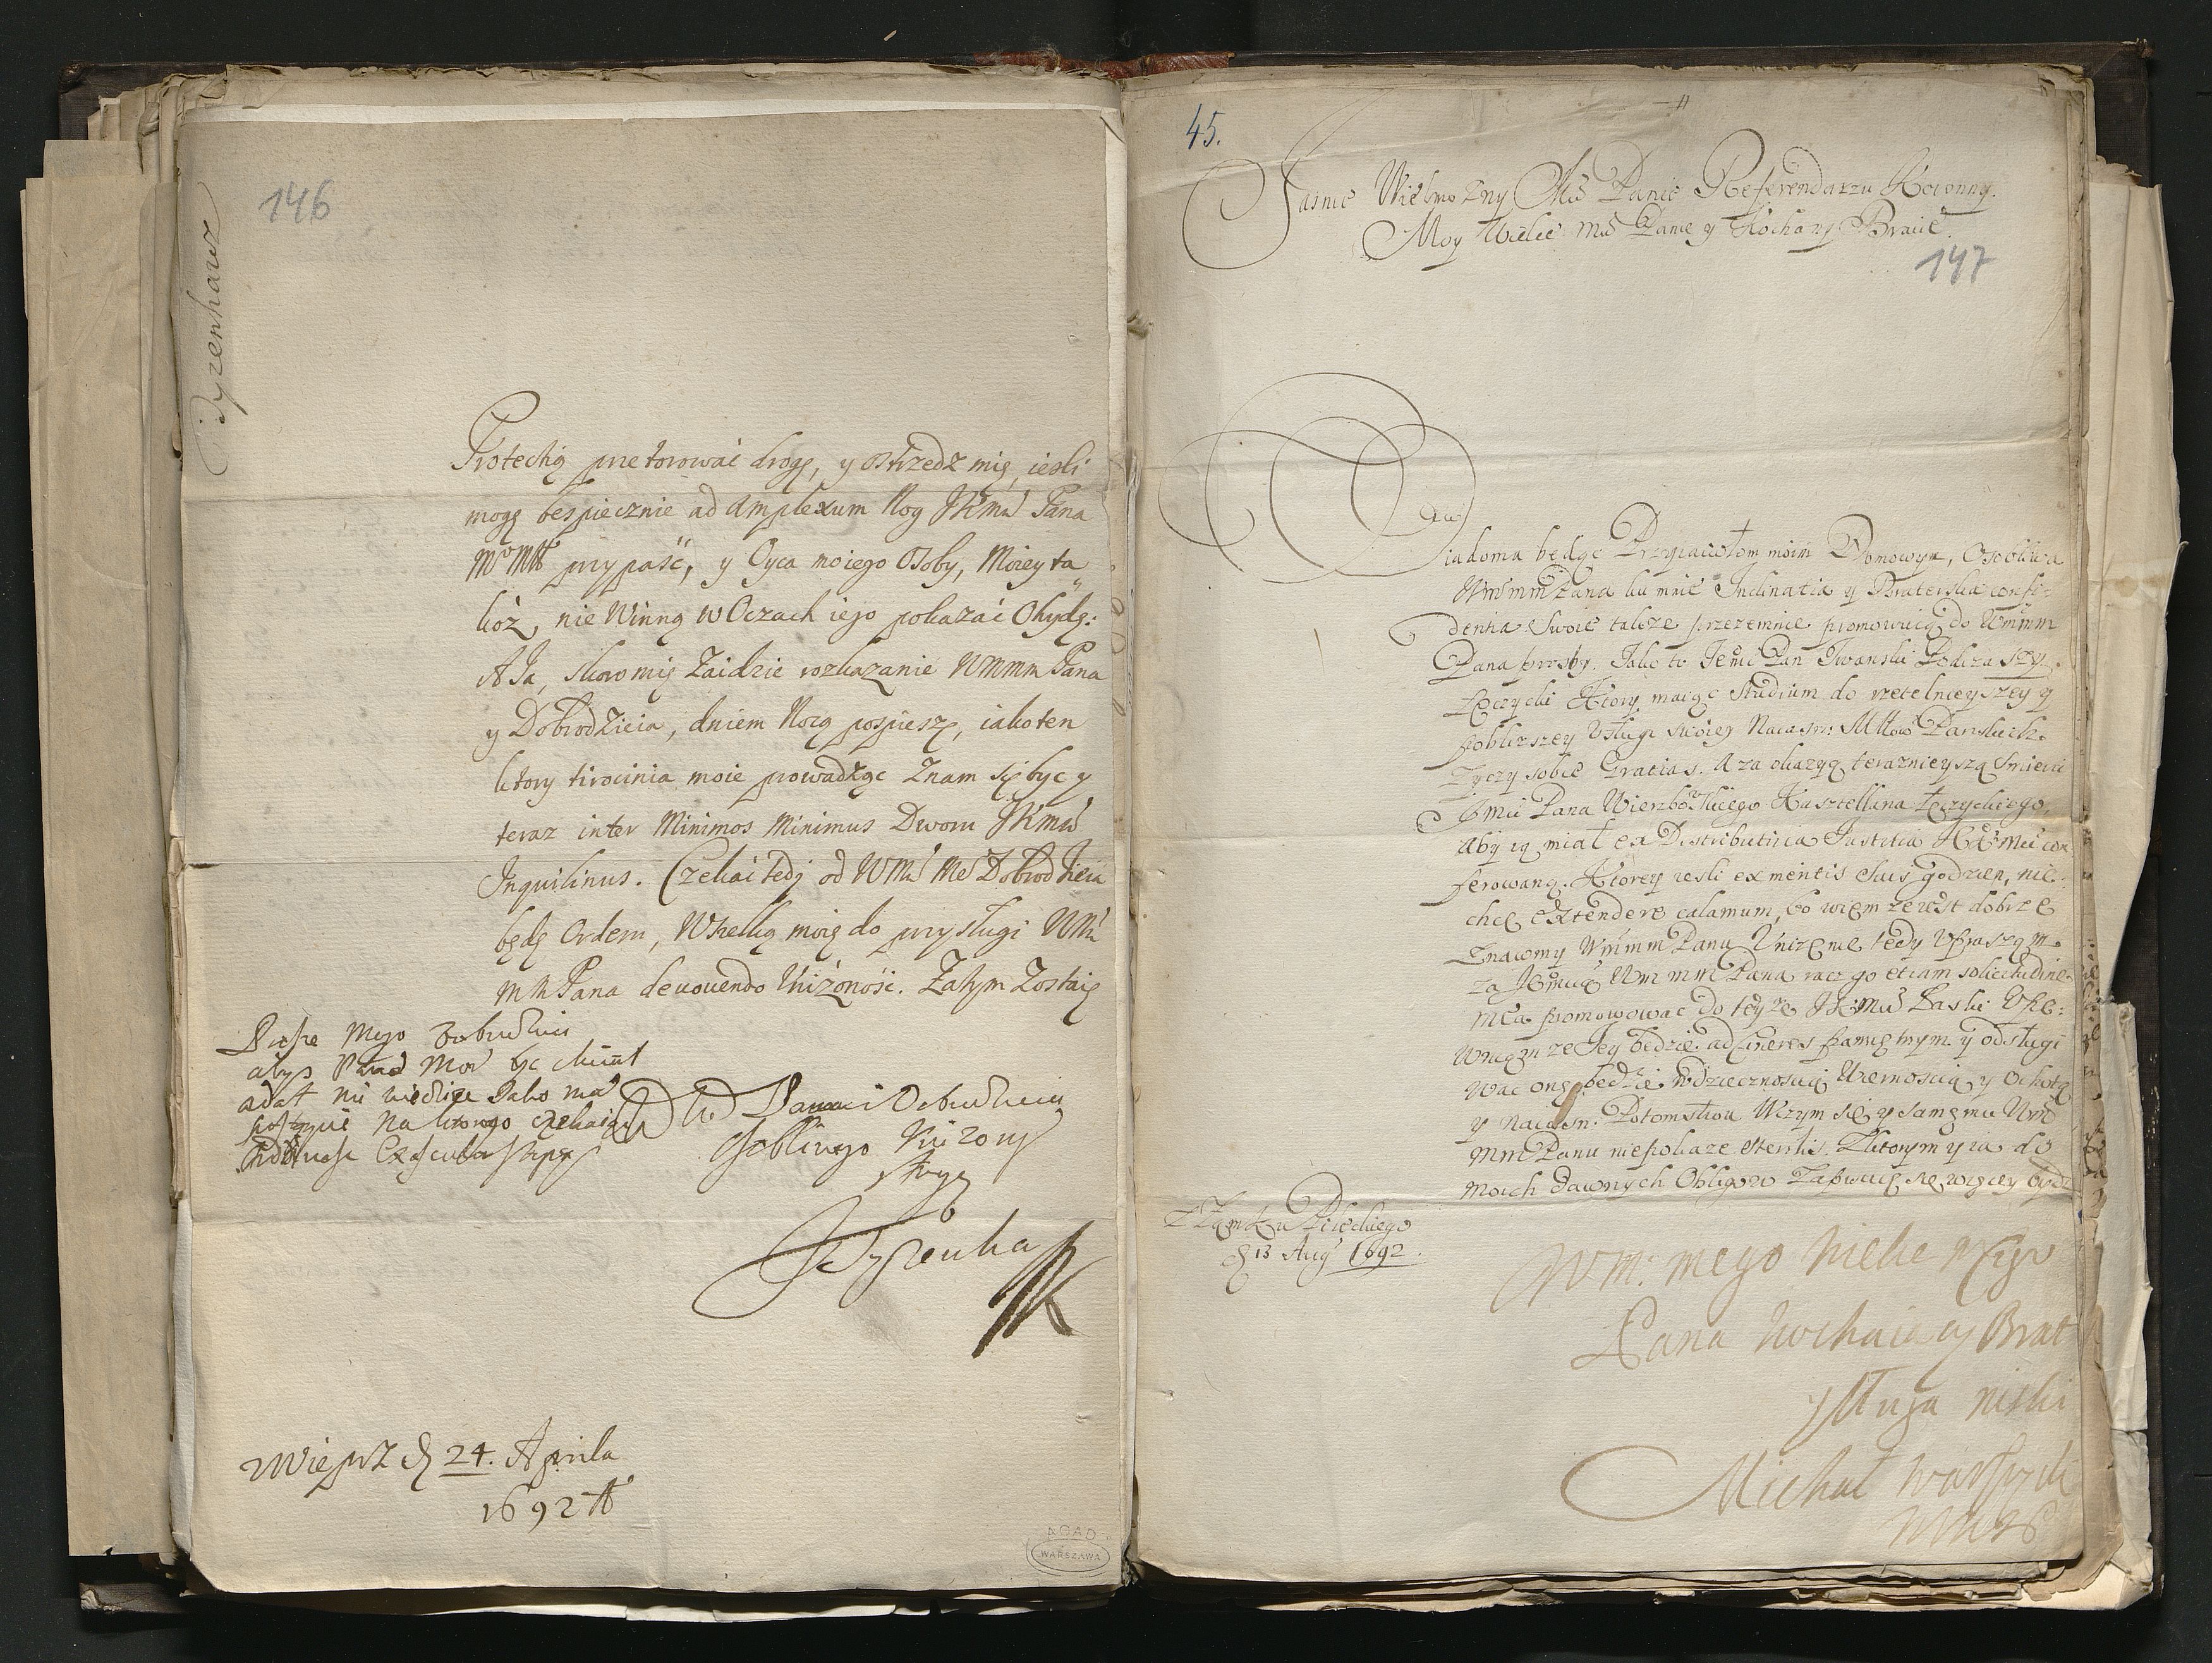 146
Tyzenhauz
Protectią pretorować drogę, y ostrzedz mię, iesli
mogę bespiecznie ad amplexum Nog JKmci Pana
przypaść, y Oyca moiego Osoby, Moiey ta
koż, nie Winną w Oczach iego pokazać Ohydę:
A Ja, skoro mię Zaidzie rozkazanie Wmmm Pana
y Dobrodzieia, dniem Nocą pospieszę, iako ten
ktory tirocinia moie prowadząc Znam się byc y
teraz inter Minimos Minimus Dworu JKmci
Inquilinus. Czekać tedy od WMci Me Dobrodzieia
będę Ordern, Wszelką moię do przysługi WMci
m m Pana devovendo Uniżoność. Zatym Zostaię
Proszę Mego Dobrodzieia
abys
na ktorego czekaiąc
Pana i Dobrodzieia
Osobliwego Uniżony
sługa
Wieprz d 24. Aprila
1692 A
AGAD
WARSZAWA
45.
Jasnie Wielmozny Mci Panie Referendarzu Koronny.
Moy Wielce Mci Panie y Kochany Bracie.
147
Wiadoma będąc Przyiaciołom moim Domowym, Osobliwa
Wmmm Pana ku mnie Inclinatia y Braterska confi-
dentia Swoie takze przezemnie promowuią do Wmmm
Pana prosby. Jako to Jemć Pan Iwanski Podczaszy
Łęczycki Ktory maiąc Studium do rzetelnieyszey y
pobliższey Usługi swoiey Naiasn: MMow Panskich.
Zyczy sobie Gratias. A za okazyą teraznieyszą Smierci
Jmci Pana Wierzbowskiego Kasztellana Łęczyckiego,
aby ią miał ex Distributiva Justitia JKMci con
ferowaną. Ktorey iesli ex meritis suis godzien, nie
chcę extendere calamum, bo wiem ze iest dobrze
Znaiomy Wmmm Panu, Unizenie tedy Upraszam
za Jemcią Wm mm Pana racz go etiam solicitudine
mea promowować do teyze JKMci Łaski Upe:
wniaąc ze Jey będzie ad cineres pamiętnym y odsługi
wac oną będzie wdzięcznoscią Wiernoscią y Ochotą
y Naiasn: Potomstwu Wczym się y samemu Wm
mm Panu niepokaze sterilis. Zktorym y ia do
moich dawnych Obligow Zapisuię się więcey bydź
Z Zamku Pileckiego
d 13 Aug 1692.
Wm: mego Wielce Mciego
Pana kochaiący Brat
y sługa niski
Michał Warszycki